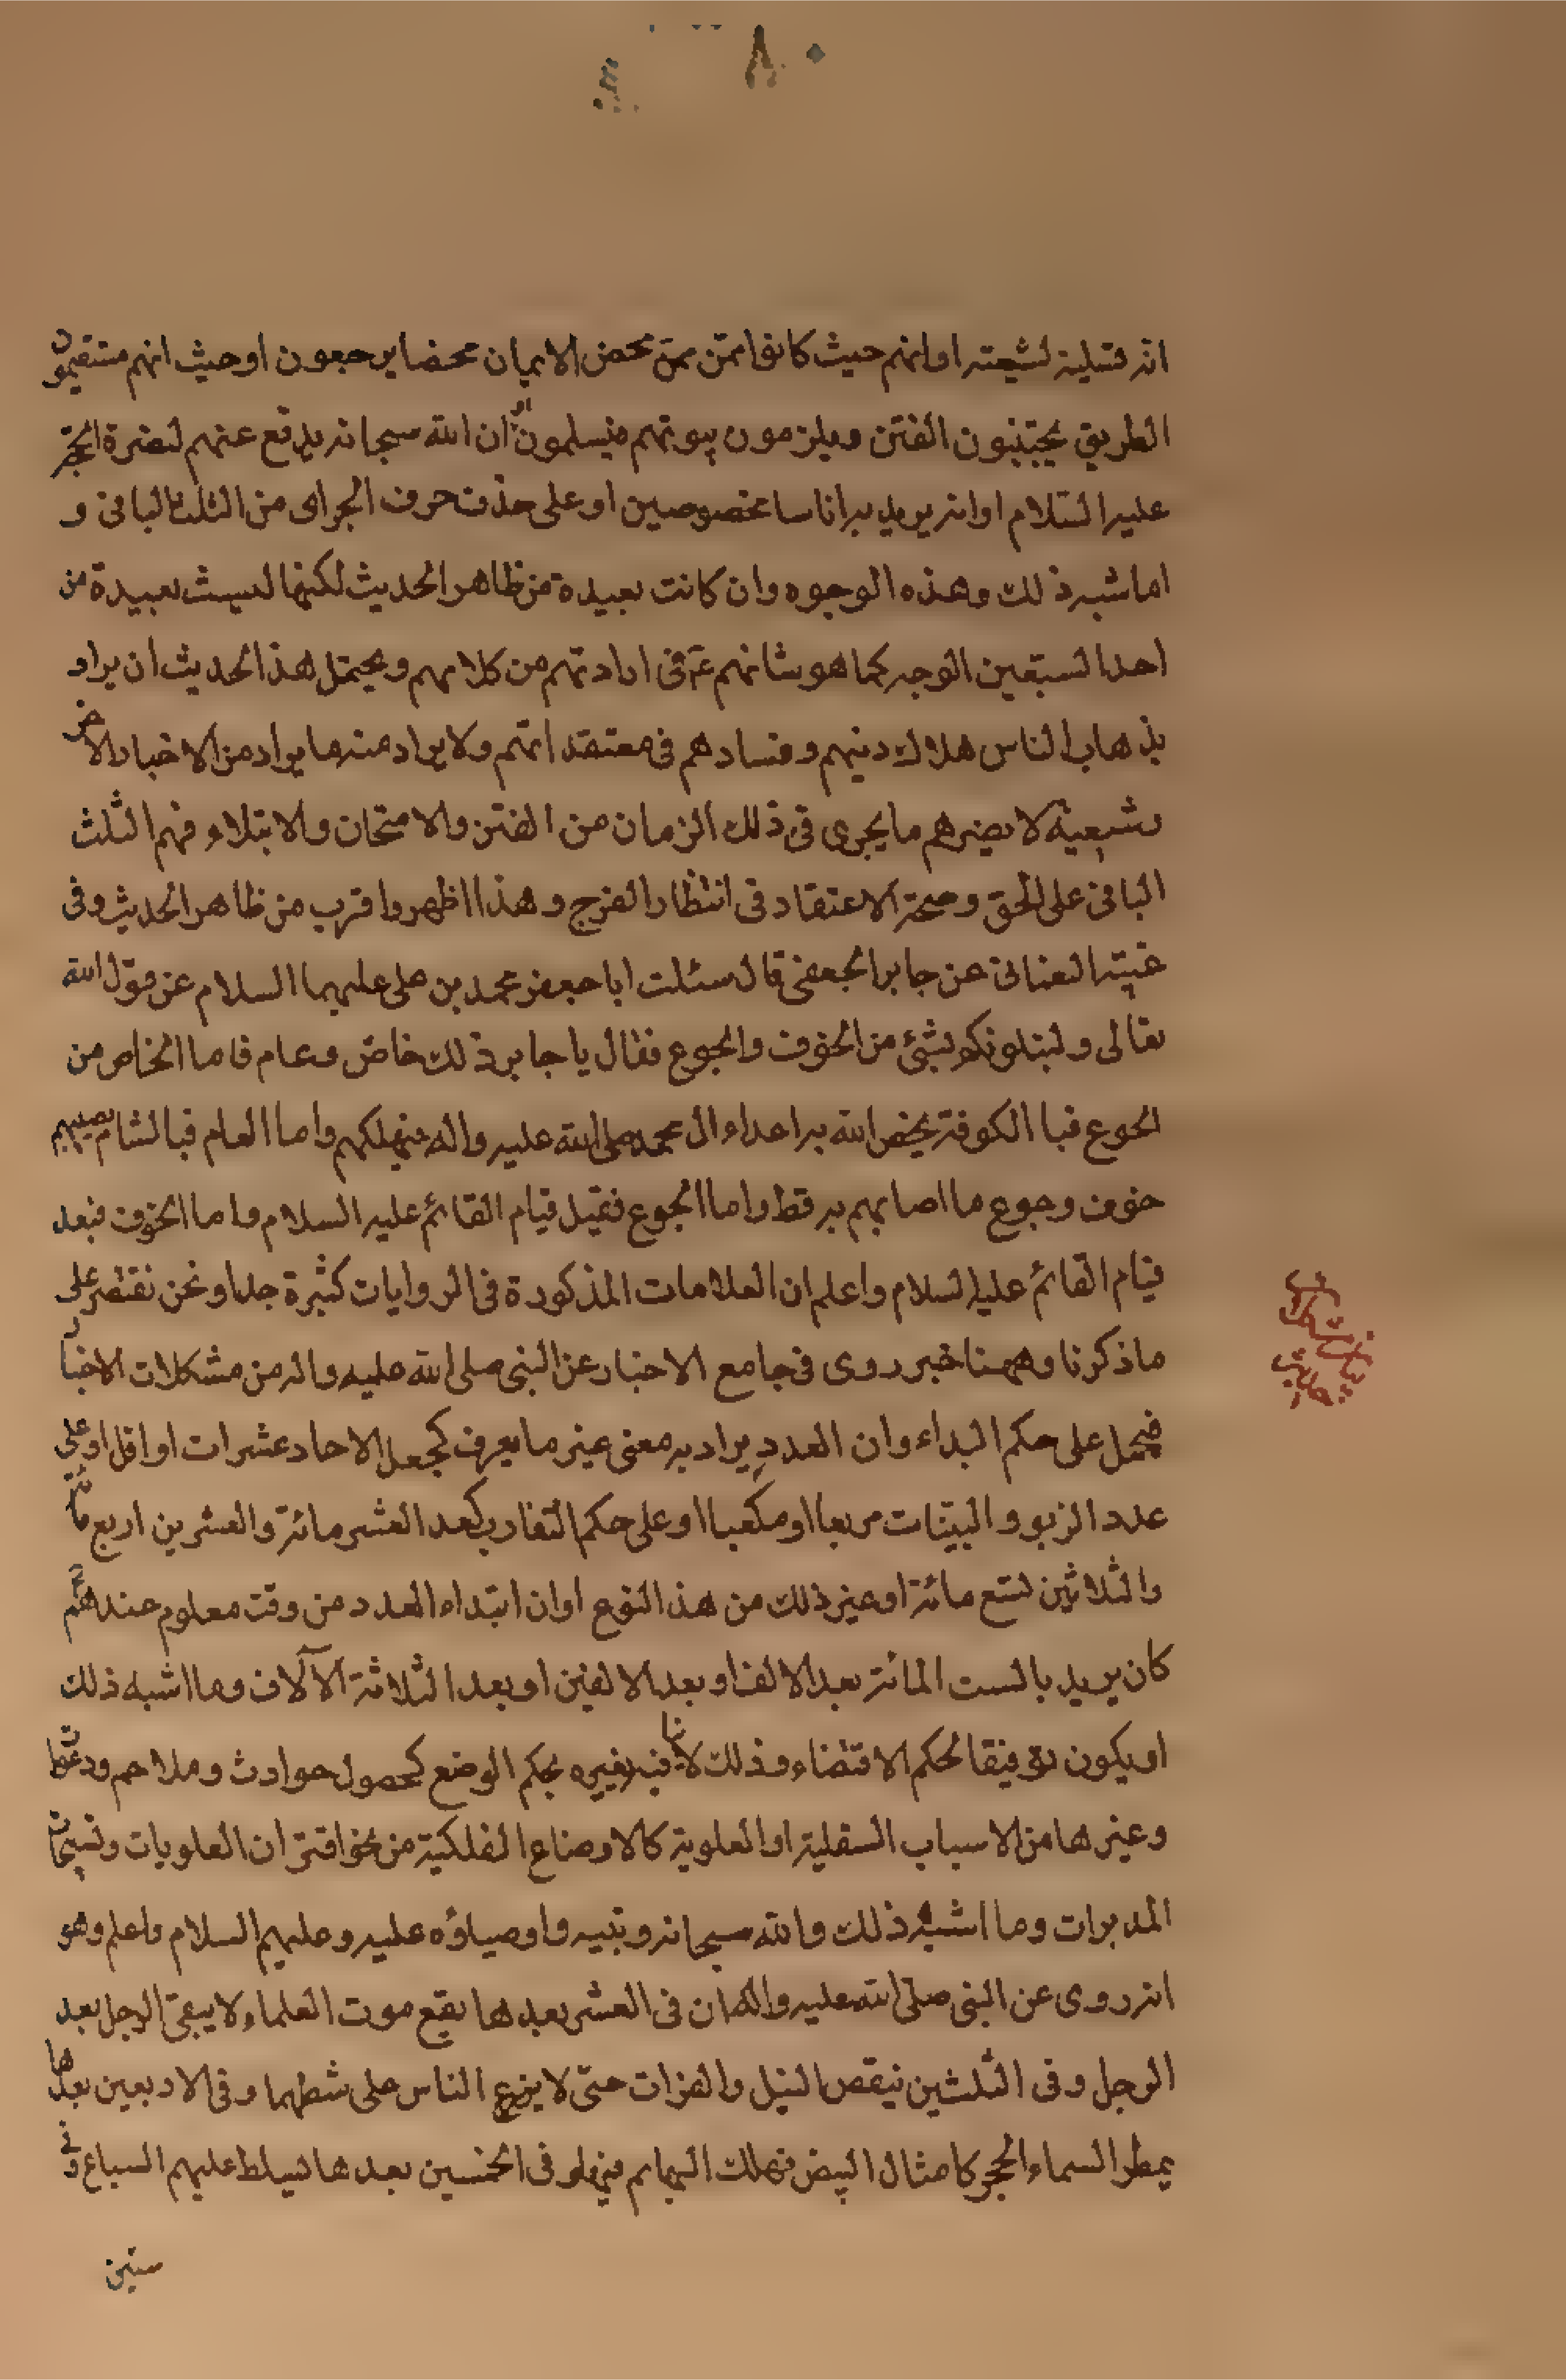 انه تسلية لشيعته او انهم حيث كانوا ممّن محض الايمان محضا يرجعون او حيث انهم مستقيموا
الطريق يجتنبون الفتن ويلزمون بيوتهم فيسلمون او ان الله سبحانه يدفع عنهم لنصرة الحجة
عليه السّلام او انه يريد به اناسا مخصوصين او على حذف حرف الجر اى من الثلث الباقى و
اما شبه ذلك وهذه الوجوه وان كانت بعيدة من ظاهر الحديث لكنها ليست بعيدة من
احد السبعين الوجه كما هو شانهم عۤ فى ارادتهم من كلامهم ويحتمل هذا الحديث ان يراد
بذهاب الناس هلاك دينهم وفسادهم فى معتقداتهم ولا يراد منه ما يراد من الاخبار الاخر
فشيعته لا يضرهم ما يجرى فى ذلك الزمان من الفتن والامتحان والابتلاء فهم الثلث
الباقى على الحق وصحة الاعتقاد فى انتظار الفرج وهذا اظهر واقرب من ظاهر الحديث وفى
غيبة النعمانى عن جابر الجعفى قال سئلت ابا جعفر محمد بن على عليهما السلام عن قول الله
تعالى ولنبلونكم بشئ من الخوف والجوع فقال يا جابر ذلك خاصّ وعام فاما الخاص من
الجوع فبا الكوفة يخص الله به اعداء ال محمد صلى الله عليه واله فيهلكهم واما العام فبالشام يصيبهم
خوف وجوع ما اصابهم به قط واما الجوع فقبل قيام القائم عليه السلام واما الخوف فبعد
قيام القائم عليه السلام واعلم ان العلامات المذكورة فى الروايات كثيرة جدا ونحن نقتصر على
ما ذكرنا وههنا خبر روى فى جامع الاخبار عن النبى صلى الله عليه واله من مشكلات الاخبار
فيحمل على حكم البداء وان العدد يراد به معنى غير ما يعرف كجعل الاحاد عشرات او اقل او على
عدد الزبر والبيّنات مربعا او مكعبا او على حكم التقارب كعد العشر مائة والعشرين اربع مائة
والثلاثين لتسع مائة او غير ذلك من هذا النوع او ان ابتداء العدد من وقت معلوم عندهم
كان يريد بالست المائة بعد الالف او بعد الالفين او بعد الثلاثة الآلاف وما اشبه ذلك
او يكون توقيفا لحكم الاقتضاء وذلك لا ينافيه تغييره بحكم الوضع كحصول حوادث وملاحم ودعوات
وغيرها من الاسباب السفلية او العلوية كالاوضاع الفلكية من نحو اقتران العلويات وتسبيحات
المدبرات وما اشبه ذلك والله سبحانه ونبيه واوصياؤه عليه وعليهم السلام اعلم وهو
انه روى عن النبى صلى الله عليه واله ان فى العشر بعدها يقع موت العلماء لا يبقى الرجل بعد
الرجل وفى الثلثين ينقص النيل والفرات حتى لا يزرع الناس على شطهما وفى الاربعين بعدها
يمطر السماء الحجر كامثال البيض فيهلك البهائم فيها وفى الخمسين بعدها يسلط عليهم السباع وفى
ستين